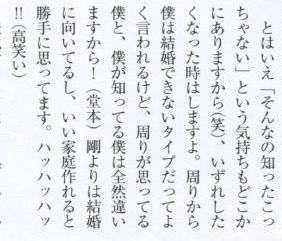 とはいえ「そんなの知ったこっ
ちゃない」という気持ちもどこか
にありますから(笑)、いずれした
くなった時はしますよ。周りから
僕は結婚できないタイプだってよ
く言われるけど、周りが思ってる
僕と、僕が知ってる僕は全然違い
ますから！(堂本)剛よりは結婚
に向いてるし、いい家庭作れると
勝手に思ってます。ハッハッハッ
!!(高笑い)